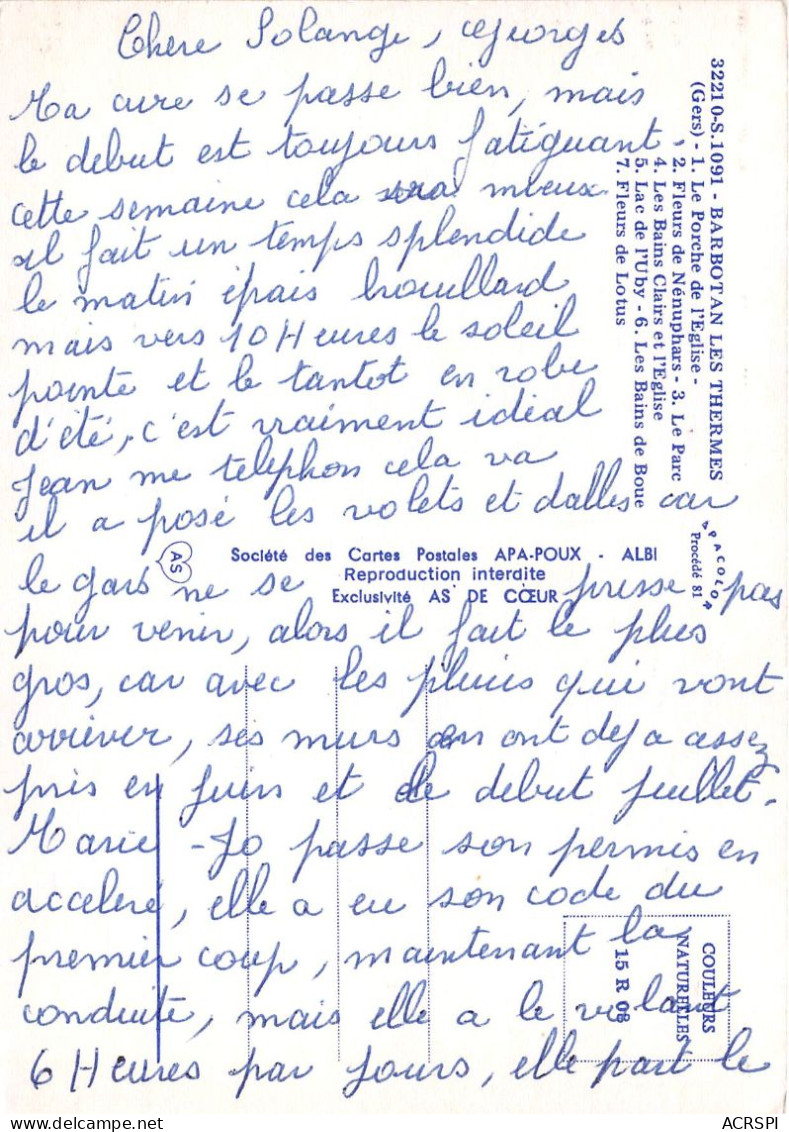 Chere Solange, Georges
Ma cure se passe bien, mais
le debut est toujours fatiguant,
cette semaine cela sera mieux
il fait un temps splendide
le matin épais brouillard
mais vers 10 Heures le soleil
pointe et le tantot en robe
d'été, c'est vraiment idéal
Jean me telephon cela va
il a posé les volets et dalles car
le gars ne se presse pas
pour venir, alors il fait le plus
gros, car avec les pluies qui vont
arriever, ses murs en ont deja assez
pris en juin et de debut juillet.
Marie-Jo passe son permis en
acceleré, elle a eu son code du
premier coup, maintenant la
conduite, mais elle a le volant
6 Heures par jours, elle part le
32210-S.1091 - BARBOTAN LES THERMES
(Gers) - 1. Le Porche de l'Eglise -
2. Fleurs de Nénuphars - 3. Le Parc
4. Les Bains Clairs et l'Eglise
5. Lac de l'Uby - 6. Les Bains de Boue
7. Fleurs de Lotus
APACOLOR
Procédé 81
AS
Société des Cartes Postales APA-POUX - ALBI
Reproduction interdite
Exclusivité AS DE CŒUR
COULEURS
NATURELLES
15 R 08
ACRSPI